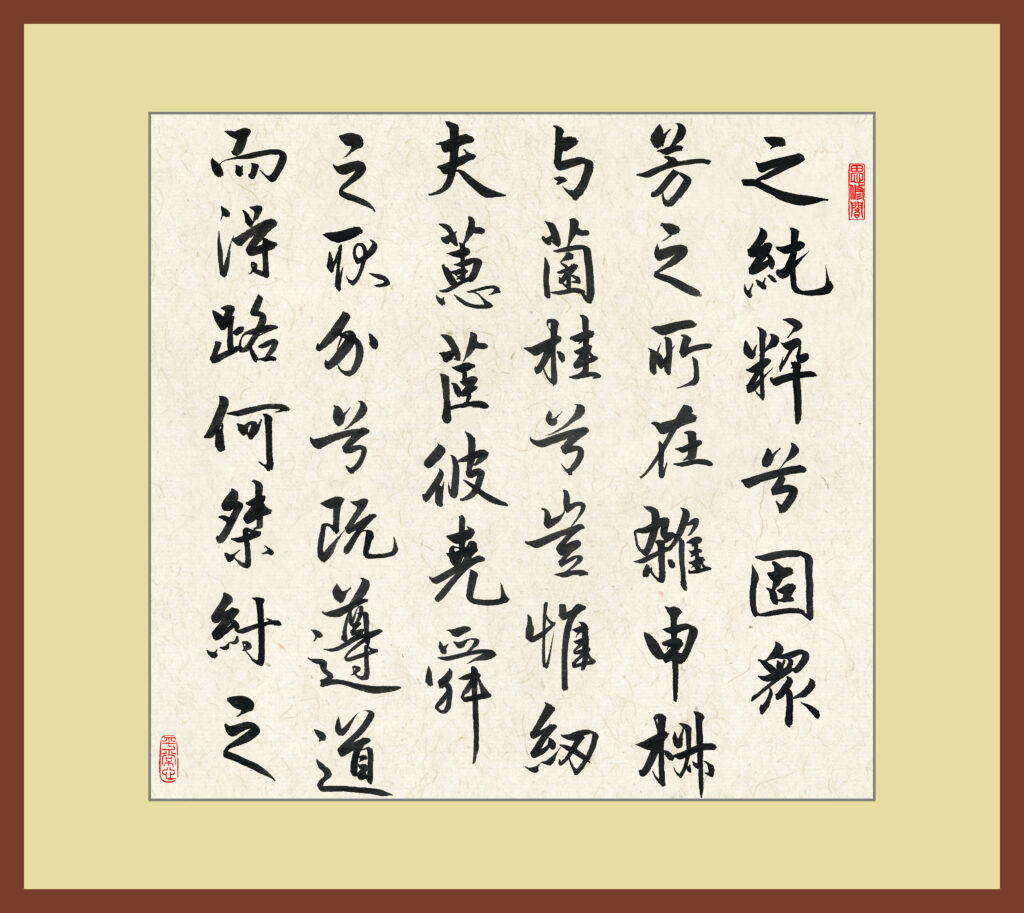 思修閣
之純粹兮固衆
芳之所在雜申椒
与菌桂兮豈惟紉
夫蕙茝彼堯舜
之耿介兮既遵道
而得路何桀紂之
平常心